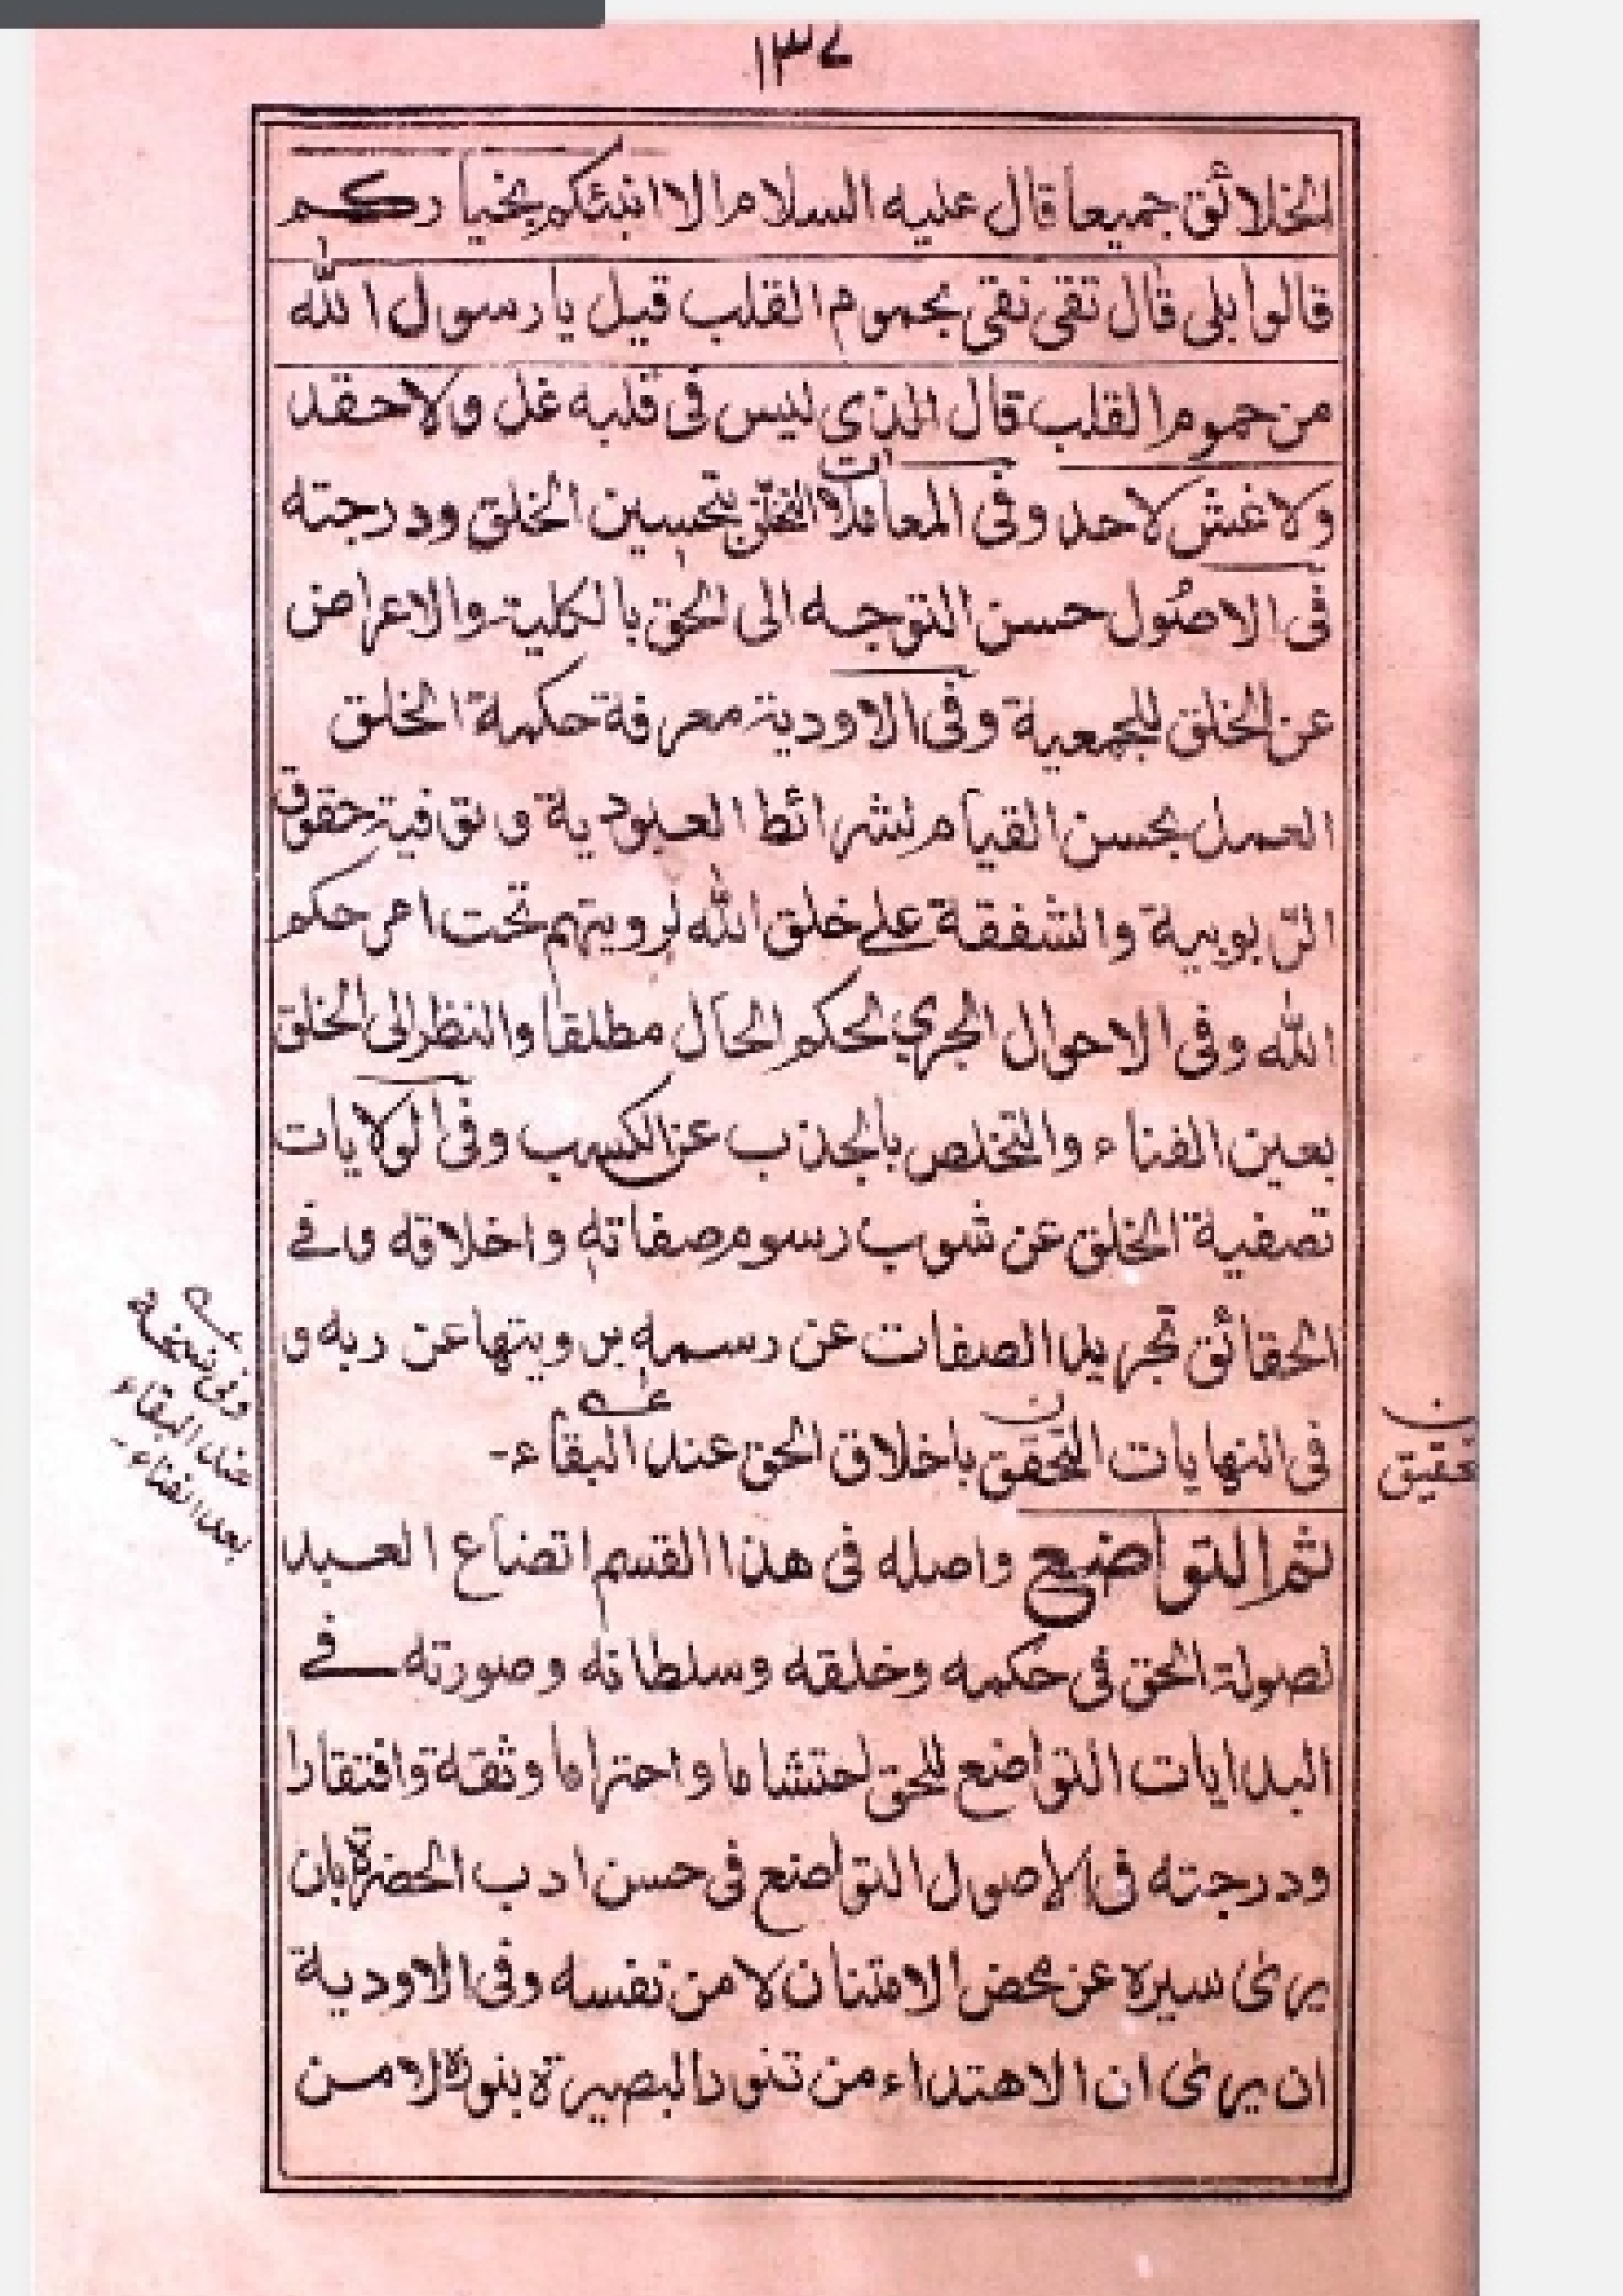 ١٣٧
الخلائق جميعا قال عليه السلام الا انبئكم بخياركم
قالوا بلى قال تقى نقى بحموم القلب قيل يا رسول الله
من حموم القلب قال الذى ليس فى قلبه غل ولا حقد
ولا غش لاحد وفى المعاملات التخلق بتحسين الخلق ودرجته
فى الاصُول حسن التوجه الى الحق بالكلية والاعراض
عن الخلق للجمعية وفى الاودية معرفة حكمة الخلق
العمل بحسن القيام لشرائط العبودية وتوفية حقوق
الربوبية والشفقة على خلق الله لرويتهم تحت امر حكم
الله وفى الاحوال الجرى لحكم الحال مطلقا والنظر الى الخلق
بعين الفناء والتخلص بالجذب عن الكسب وفى الولايات
تصفية الخلق عن شوب رسوم صفاته واخلاقه وافے
الحقائق تجريد الصفات عن رسمه برويتها عن ربه و
فى النهايات التحقق باخلاق الحق عند البقاء-
ن
تحقيق
عـه
وفى نسخة
عند البقاء
بعد الفناء-
ثم التواضع واصله فى هذا القسم اتضاع العبد
لصولة الحق فى حكمه وخلقه وسلطانه وصورته فے
البدايات التواضع للحق احتشاما واحتراما وثقة وافتقارا
ودرجته فى الاصول التواضع فى حسن ادب الحضرة بان
يرىٰ سيره عن محض الامتنان لا من نفسه وفى الاودية
ان يرىٰ ان الاهتداء من تنور البصيرة بنوره لا من